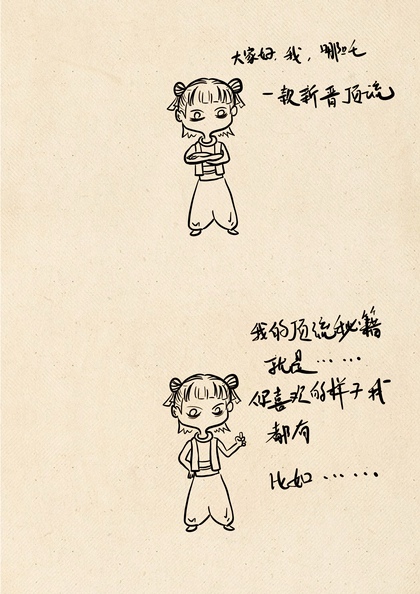 大家好.我，哪吒
一款新晋顶流
我的顶流秘籍
就是……
你喜欢的样子我
都有
比如……